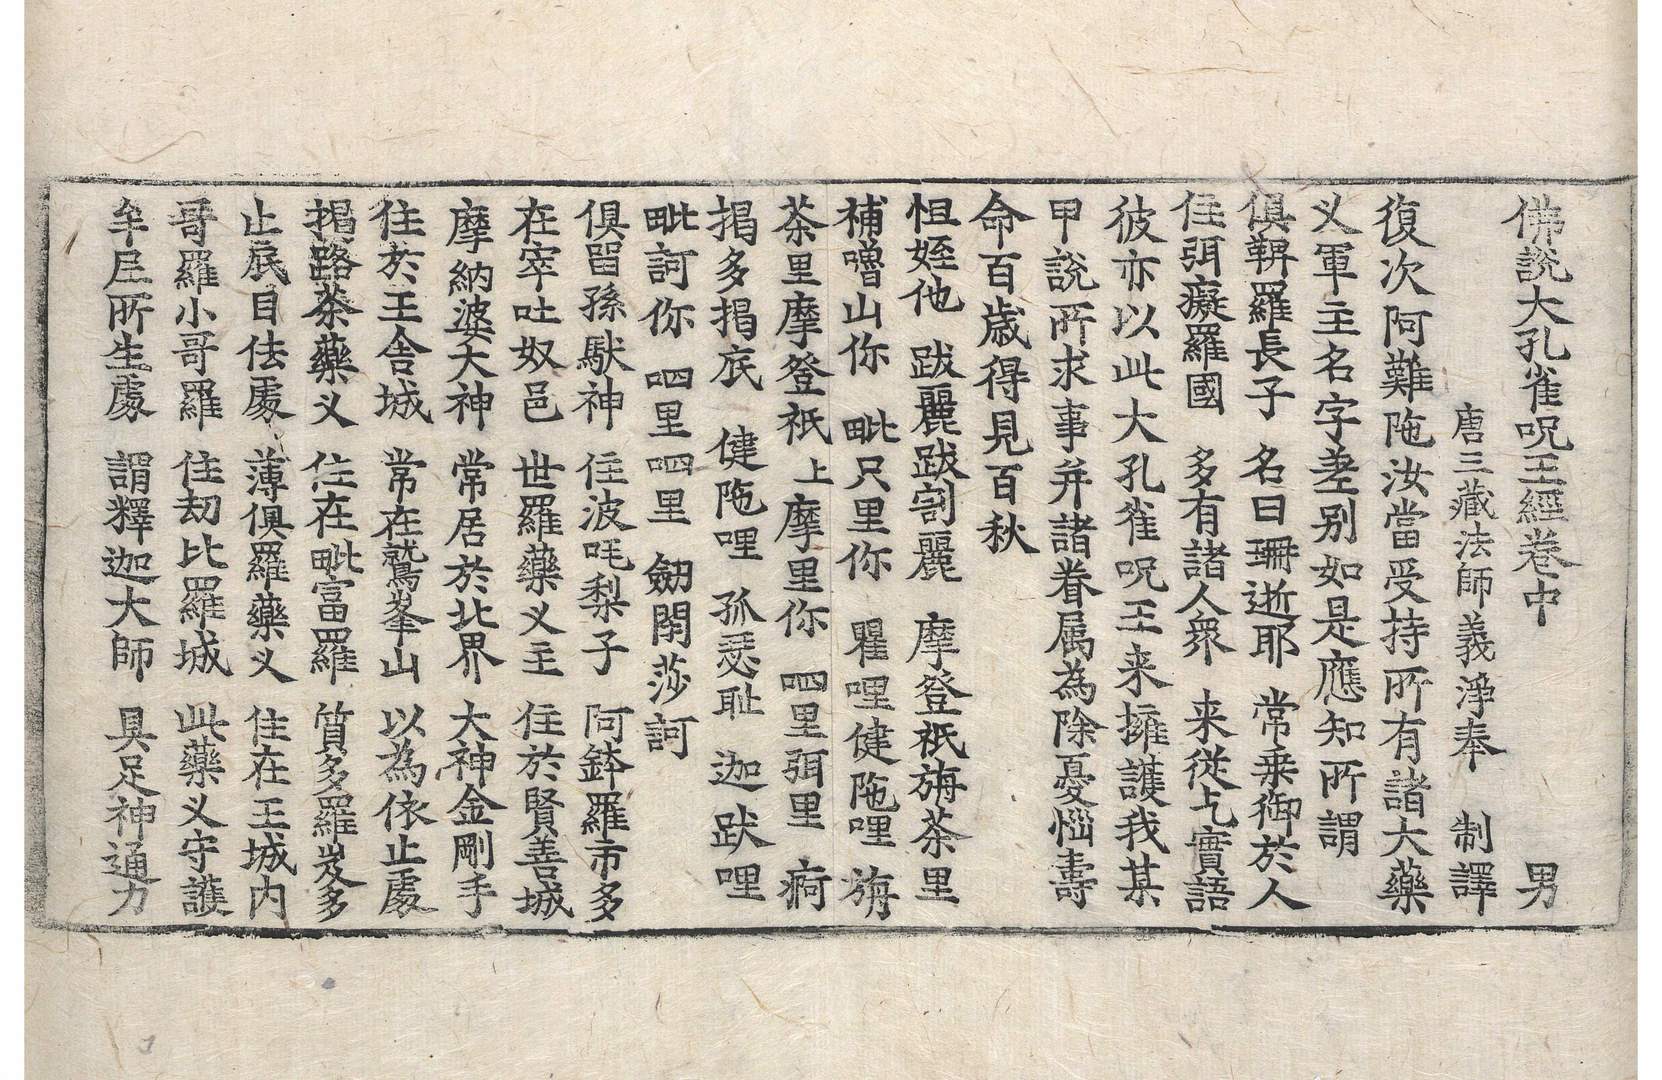 佛說大孔雀呪王經卷中 男
唐三藏法師義淨奉 制譯
復次阿難陁汝當受持所有諸大藥
义軍主名字差別如是應知所謂
俱鞞羅長子 名曰珊逝耶 常乗御於人
住弭癡羅國 多有諸人衆 来從乞實語
彼亦以此大孔雀呪王来擁護我某
甲說所求事并諸眷属為除憂惱壽
命百歲得見百秋
怛姪他 跋麗跋割麗 摩登祇旃荼里
補嚕山你 毗只里你 瞿哩健陁哩 旃
荼里摩登祇上摩里你 呬里弭里 痾
揭多揭底 健陁哩 孤瑟耻 迦趺哩
毗訶你 呬里呬里 劒閇莎訶
俱留孫馱神 住波吒梨子 阿鉢羅市多
在宰吐奴邑 世羅藥义主 住於賢善城
摩納婆大神 常居於北界 大神金剛手
住於王舍城 常在鷲峯山 以為依止處
揭路荼藥义 住在毗富羅 質多羅岌多
止底目佉處 薄俱羅藥义 住在王城内
哥羅小哥羅 住劫比羅城 此藥义守護
牟尼所生處 謂釋迦大師 具足神通力